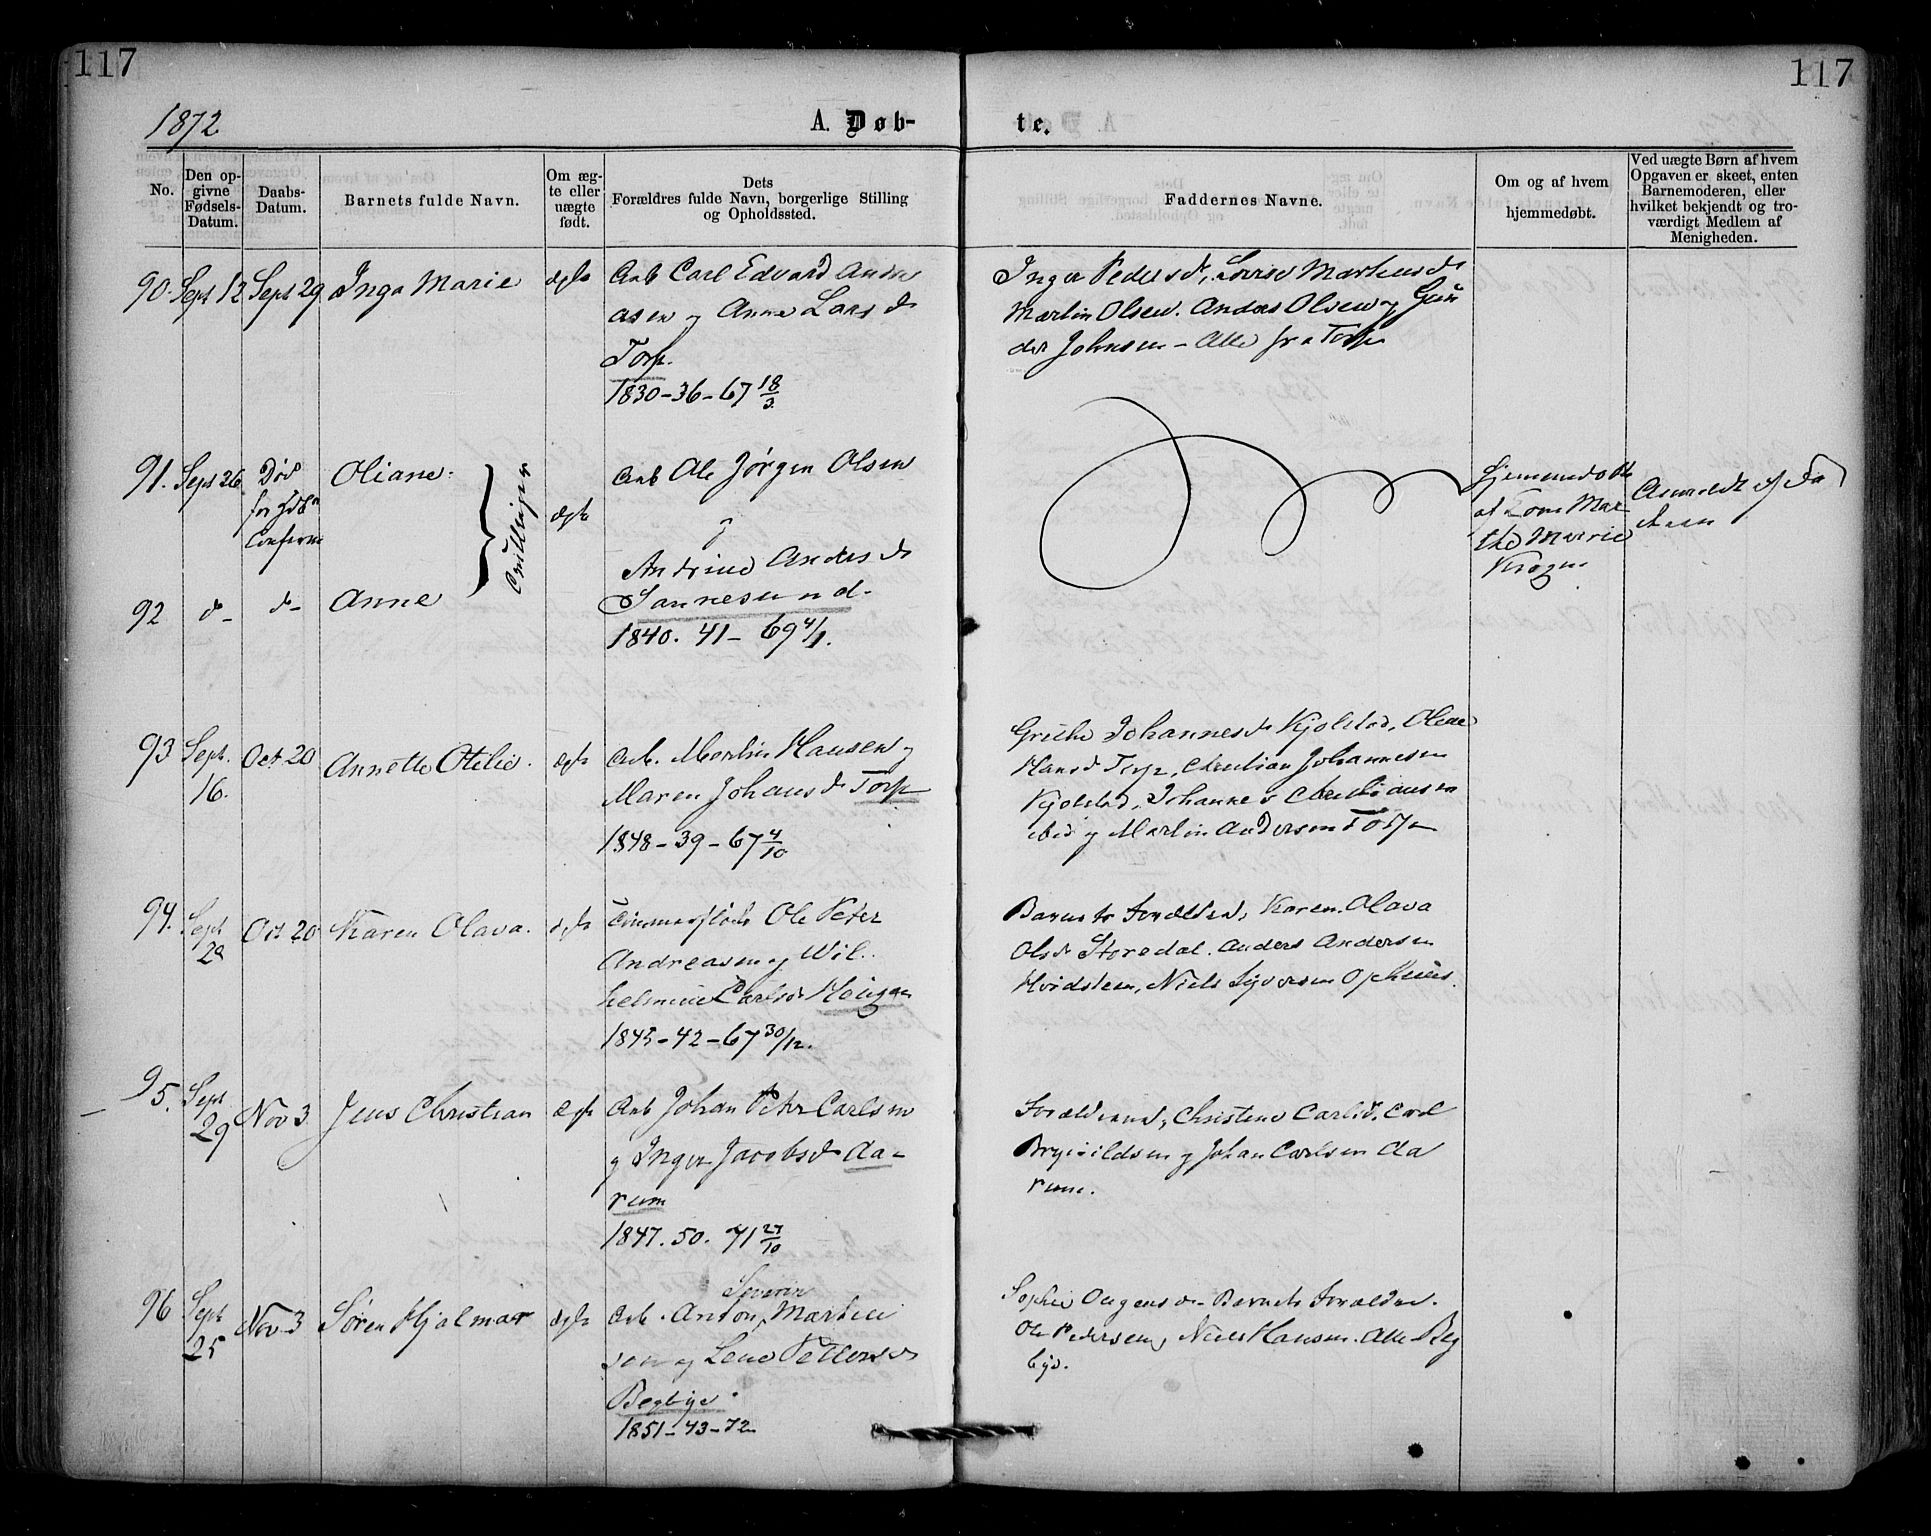 117
117
1872
A. Døb-
te.
No.
Den op-
givne
Fødsels-
Datum.
Daabs-
Datum.
Barnets fulde Navn.
Om æg-
te eller
uægte
født.
Dets
Forældres fulde Navn, borgerlige Stilling
og Opholdssted.
Faddernes Navne.
Om og af hvem
hjemmedøbt.
Ved uægte Børn af hvem
Opgaven er skeet, enten
Barnemoderen, eller
hvilket bekjendt og tro-
værdigt Medlem af
Menigheden.
90. Sept 12 Sept 29 Inga Marie ægte
Arb Carl Edvard Andre
asen og Anne Lars d
Torp.
1830-36-67 18/3
Inger Peders d, Lovise Martins d
Martin Olsen. Anders Olsen og Gun
der Johnsen - Alle fra Torp
91. Sept 26 Død
for
Confirm
Oliane.
Tvillinger
ægte
Arb Ole Jørgen Olsen
og
Andrine Anders d
Sannesund.
1840. 41-69 4/1.
Hjemmedøbt
af Kone Mar
the Marie
Anmeldt af Fa
deren
92 d- d- Anne
93 Sept.
16.
Oct 20 Annette Otilie. ægte
Arb. Martin Hansen og
Maren Johans d Torp
1848-39-67 4/10
Grethe Johannes d Kjølstad, Olene
Hans d Torp, Christian Johannesen
Kjølstad, Johannes Christiansen
ibid og Martin Andersen Torp
94. Sept
29
Oct 20 Karen Olava. ægte
Ole Peter
Andreasen og Wil-
helmine Carls d Haugen
1845-42-67 30/12.
Barnets Forældre, Karen Olava
Ols d Storedal. Anders Andersen
Hvidsteen, Niels Syversen Ophuus
95. Sept
29
Nov 3 Jens Christian ægte
Arb Johan Peter Carlsen
og Inger Jacobs d Aa-
rum
1847. 50. 71 27/10
Forældrene, Christine Carls d, Carl
Brynildsen og Johan Carlsen Aa
rum.
96 Sept
25
Nov 3 Søren Hjalmar ægte
Severin
Arb. Anton Martin
sen og Lene Petters d
Begbye.
1851-43-72
Sophie d Barnets Forældre.
Ole Pedersen, Niels Hansen. Alle Beg
bye.